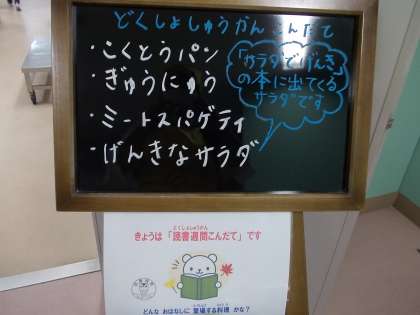 どくしょしゅうかんこんだて
・こくとうパン
・ぎゅうにゅう
・ミートスパゲティ
・げんきなサラダ
「サラダでげんき」
の本に出てくる
サラダです
どくしょしゅうかん
きょうは「読書週間こんだて」です
どんな おはなしに 登場する料理 かな？